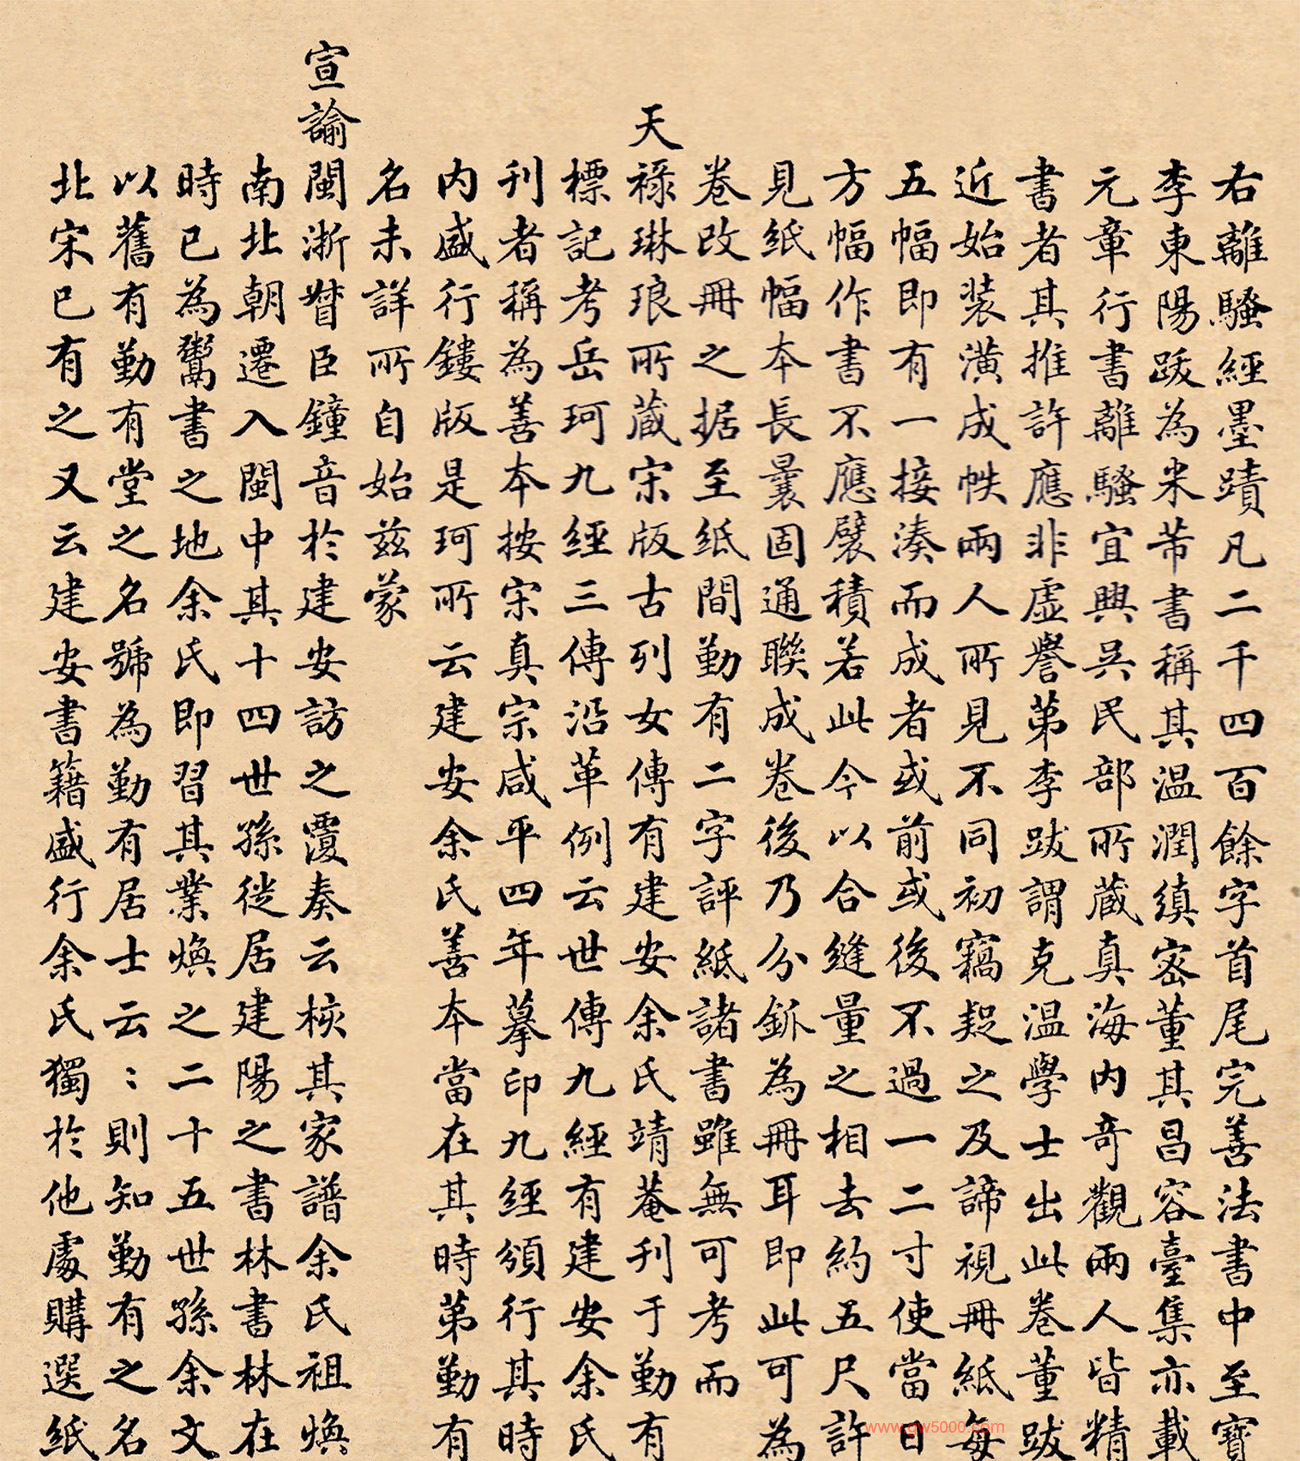 右離騷經墨蹟凡二千四百餘字首尾完善法書中至寶
李東陽跋為米芾書稱其温潤縝密董其昌容臺集亦載
元章行書離騷宜興吳民部所藏真海内奇觀兩人皆精
書者其推許應非虛譽第李跋謂克温學士出此卷董跋
近始裝潢成帙兩人所見不同初竊疑之及諦視冊紙每
五幅即有一接湊而成者或前或後不過一二寸使當日
方幅作書不應襞積若此今以合縫量之相去約五尺許
見紙幅本長曩固通聯成卷後乃分鈲為冊耳即此可為
卷改冊之据至紙間勤有二字評紙諸書雖無可考而
天祿琳琅所藏宋版古列女傳有建安余氏靖菴刊于勤有
標記考岳珂九經三傳沿革例云世傳九經有建安余氏
刊者稱為善本按宋真宗咸平四年摹印九經頒行其時
内盛行鏤版是珂所云建安余氏善本當在其時第勤有
名未詳所自始茲蒙
宣諭閩浙督臣鐘音於建安訪之覆奏云核其家譜余氏祖煥
南北朝遷入閩中其十四世孫徙居建陽之書林書林在
時已為鬻書之地余氏即習其業煥之二十五世孫余文
以舊有勤有堂之名號為勤有居士云：則知勤有之名
北宋已有之又云建安書籍盛行余氏獨於他處購選紙
www.gw5000.com